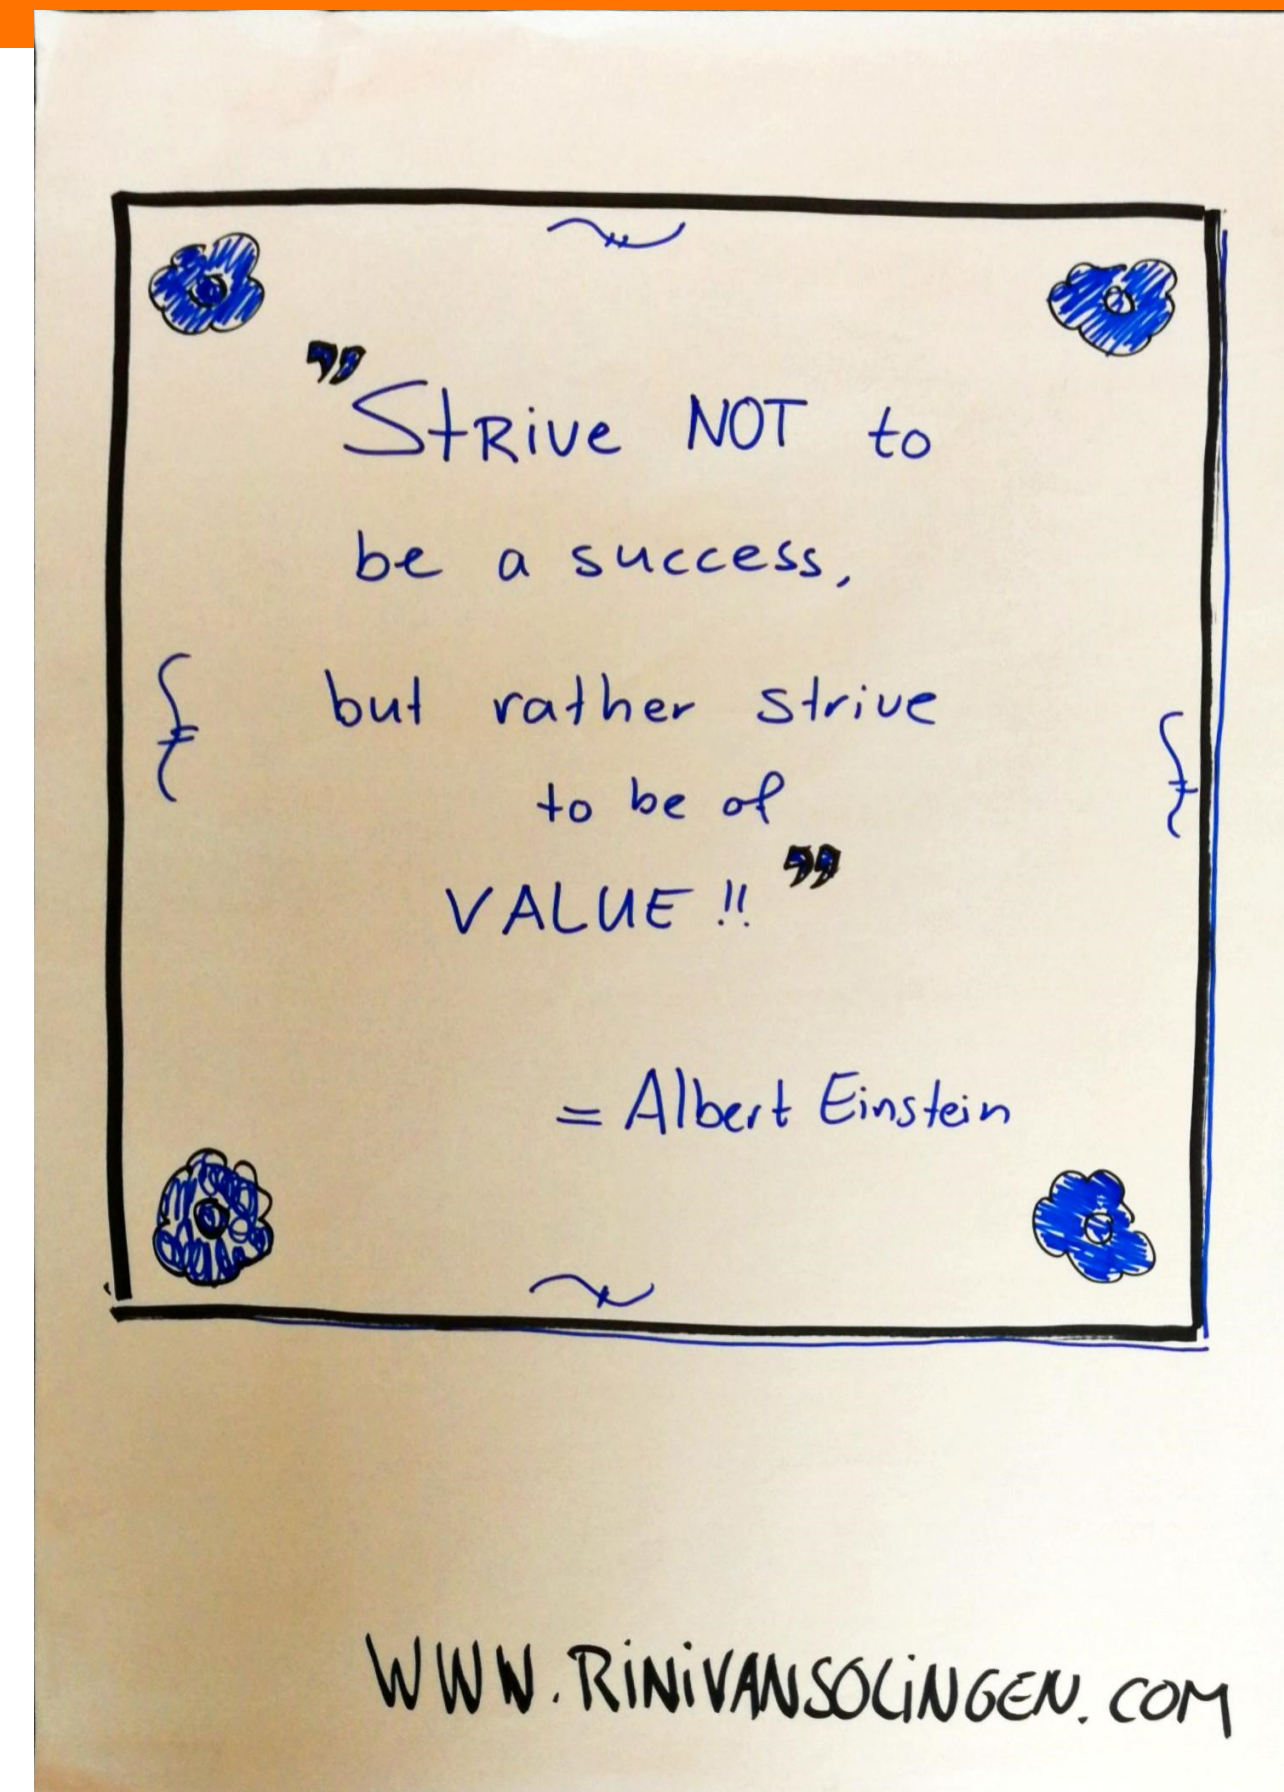 "Strive NOT to
be a success,
but rather strive
to be of
VALUE!!"
= Albert Einstein
WWW.RiNiVANSOLiNGEN.COM